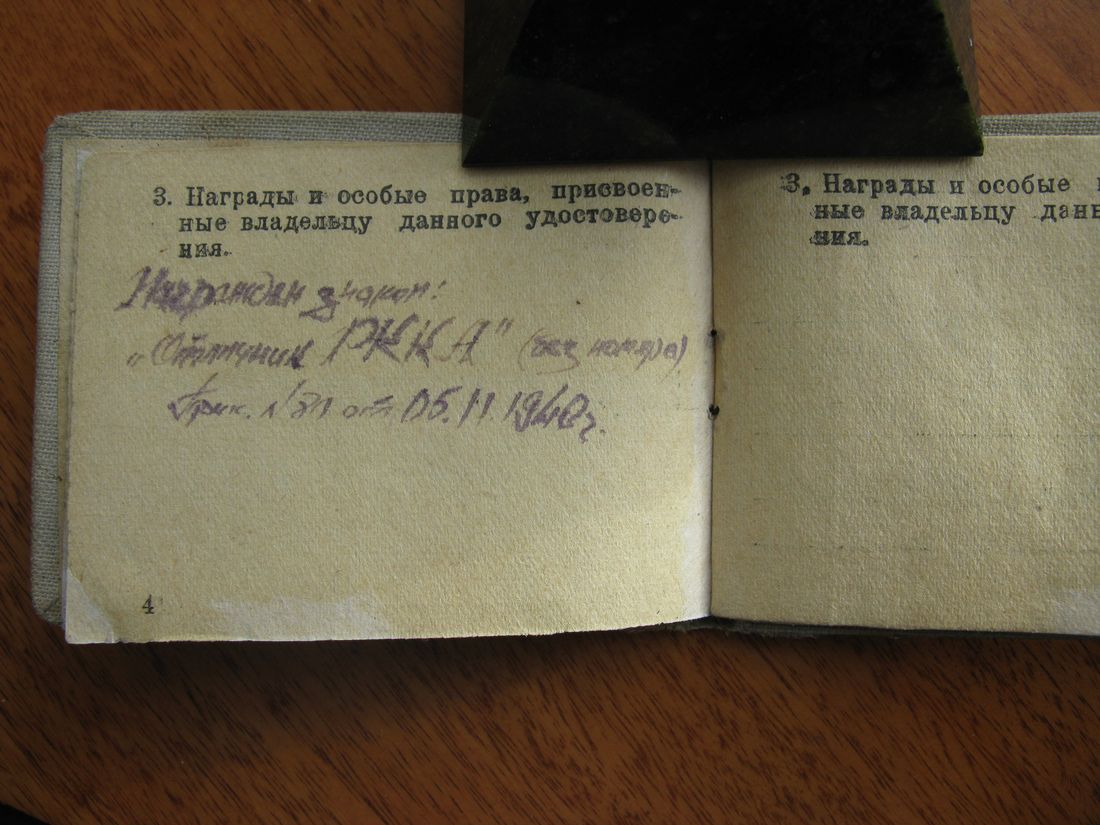 3. Награды и особые права, присвоен-
ные владельцу данного удостовере-
ния.
Награжден знаком:
„Отличник РККА" (без номера)
Прик. № от 05.11.1940г.
4
3. Награды и особые
ные владельцу
ния.